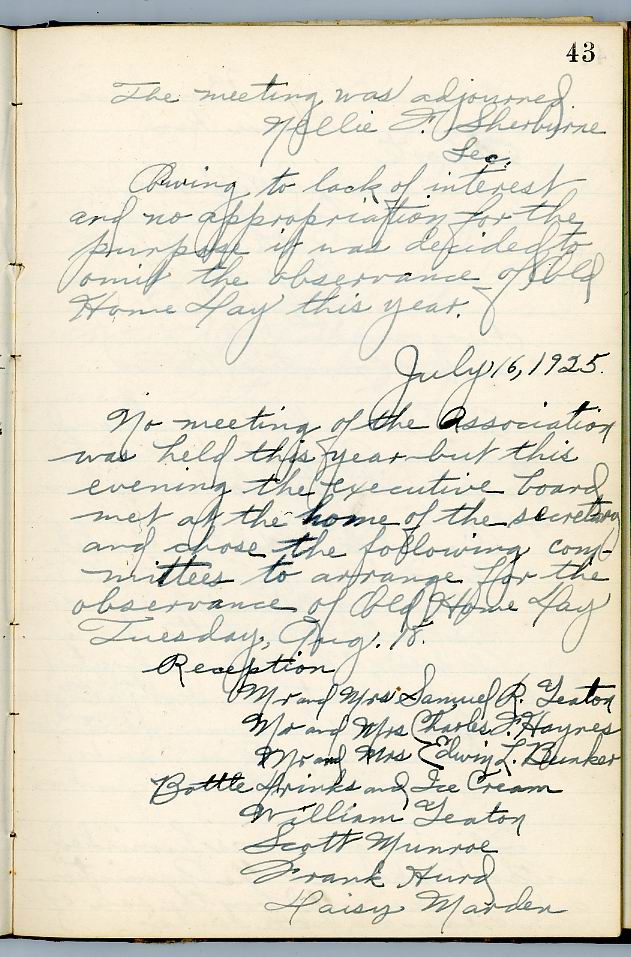 43
The meeting was adjourned
Nellie F. Sherburne
Sec.
Owing to lack of interest
and no appropriation for the
purpose it was decided to
omit the observance of Old
Home Day this year.
July 16, 1925.
No meeting of the Association
was held this year but this
evening the executive board
met at the home of the secretary
and chose the following com-
mittees to arrange for the
observance of Old Home Day
Tuesday, Aug. 18.
Reception
Mr and Mrs Samuel R. Yeaton
Mr and Mrs Charles F. Haynes
Mr and Mrs Edwin L. Bunker
Bottle Drinks and Ice Cream
William Yeaton
Scott Munroe
Frank Hurd
Daisy Marden